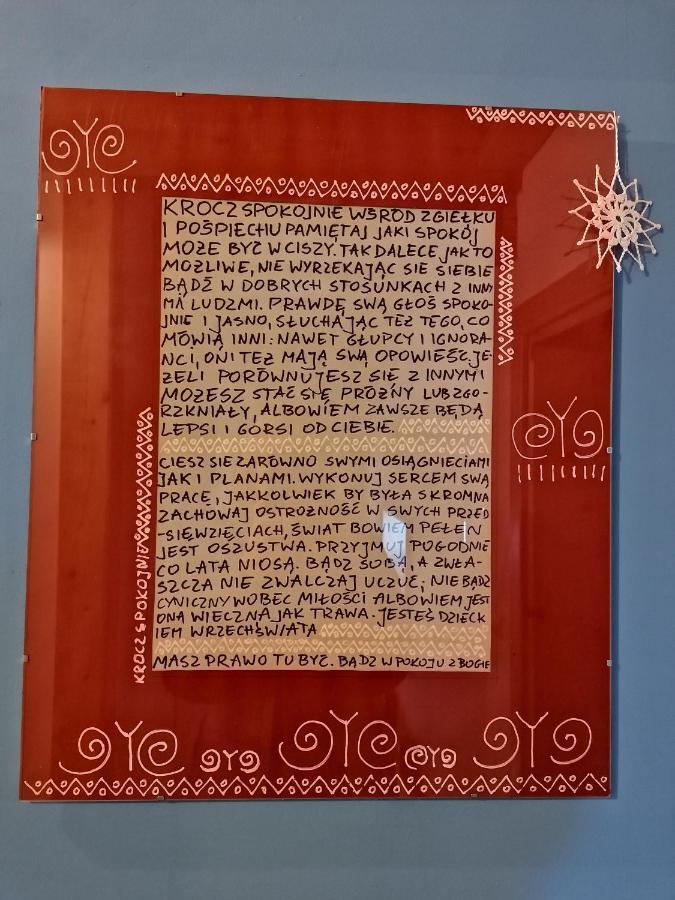 KROCZ SPOKOJNIE WŚRÓD ZGIEŁKU
I POŚPIECHU PAMIĘTAJ JAKI SPOKÓJ
MOŻE BYĆ W CISZY. TAK DALECE JAK TO
MOŻLIWE, NIE WYRZEKAJĄC SIE SIEBIE
BĄDŹ W DOBRYCH STOSUNKACH Z INNY
MA LUDZMI. PRAWDĘ SWĄ GŁOŚ SPOKO-
JNIE I JASNO, SŁUCHAJĄC TEŻ TEGO, CO
MÓWIĄ INNI: NAWET GŁUPCY I IGNORA-
NCI, ONI TEŻ MAJĄ SWĄ OPOWIEŚĆ. JE-
ŻELI PORÓWNUJESZ SIĘ Z INNYMI
MOŻESZ STAĆ SIĘ PRÓŻNY LUB ZGO-
RZKNIAŁY, ALBOWIEM ZAWSZE BĘDĄ
LEPSI I GORSI OD CIEBIE.
CIESZ SIE ZARÓWNO SWYMI OSIĄGNIĘCIAMI
JAK I PLANAMI. WYKONUJ SERCEM SWĄ
PRACĘ, JAKKOLWIEK BY BYŁA SKROMNA
ZACHOWAJ OSTROŻNOŚĆ W SWYCH PRZED
-SIĘWZIĘCIACH, ŚWIAT BOWIEM PEŁEN
JEST OSZUSTWA. PRZYJMUJ POGODNIE
CO LATA NIOSĄ. BĄDŹ SOBĄ, A ZWŁA-
SZCZA NIE ZWALCZAJ UCZUĆ; NIE BĄDŹ
CYNICZNY WOBEC MIŁOŚCI ALBOWIEM JEST
ONA WIECZNA JAK TRAWA. JESTEŚ DZIECK
IEM WRZECHŚWIATA
MASZ PRAWO TU BYĆ. BĄDŹ W POKOJU Z BOGIE
KROCZ SPOKOJNIE